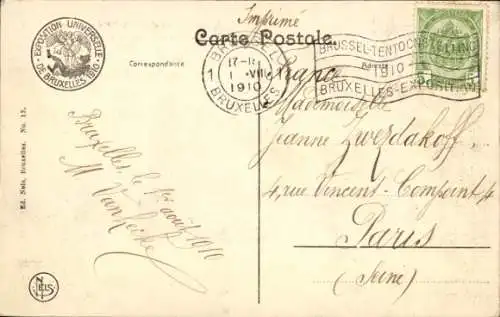 Imprimé
Carte Postale.
EXPOSITION UNIVERSELLE
DE BRUXELLES 1910
Correspondance
Adresse
BRUXELLES
1 VIII
1910
BRUXELLES
BRUSSEL-TENTOONSTELLING
1910
BRUXELLES-EXPOSITION
France
Mademoiselle
Jeanne Zwerdakoff
4, rue Vincent-Compoint 4
Paris
(Seine)
Bruxelles, le 1er août 1910
M Van Hecke
Ed. Nels, Bruxelles. No. 13.
NELS